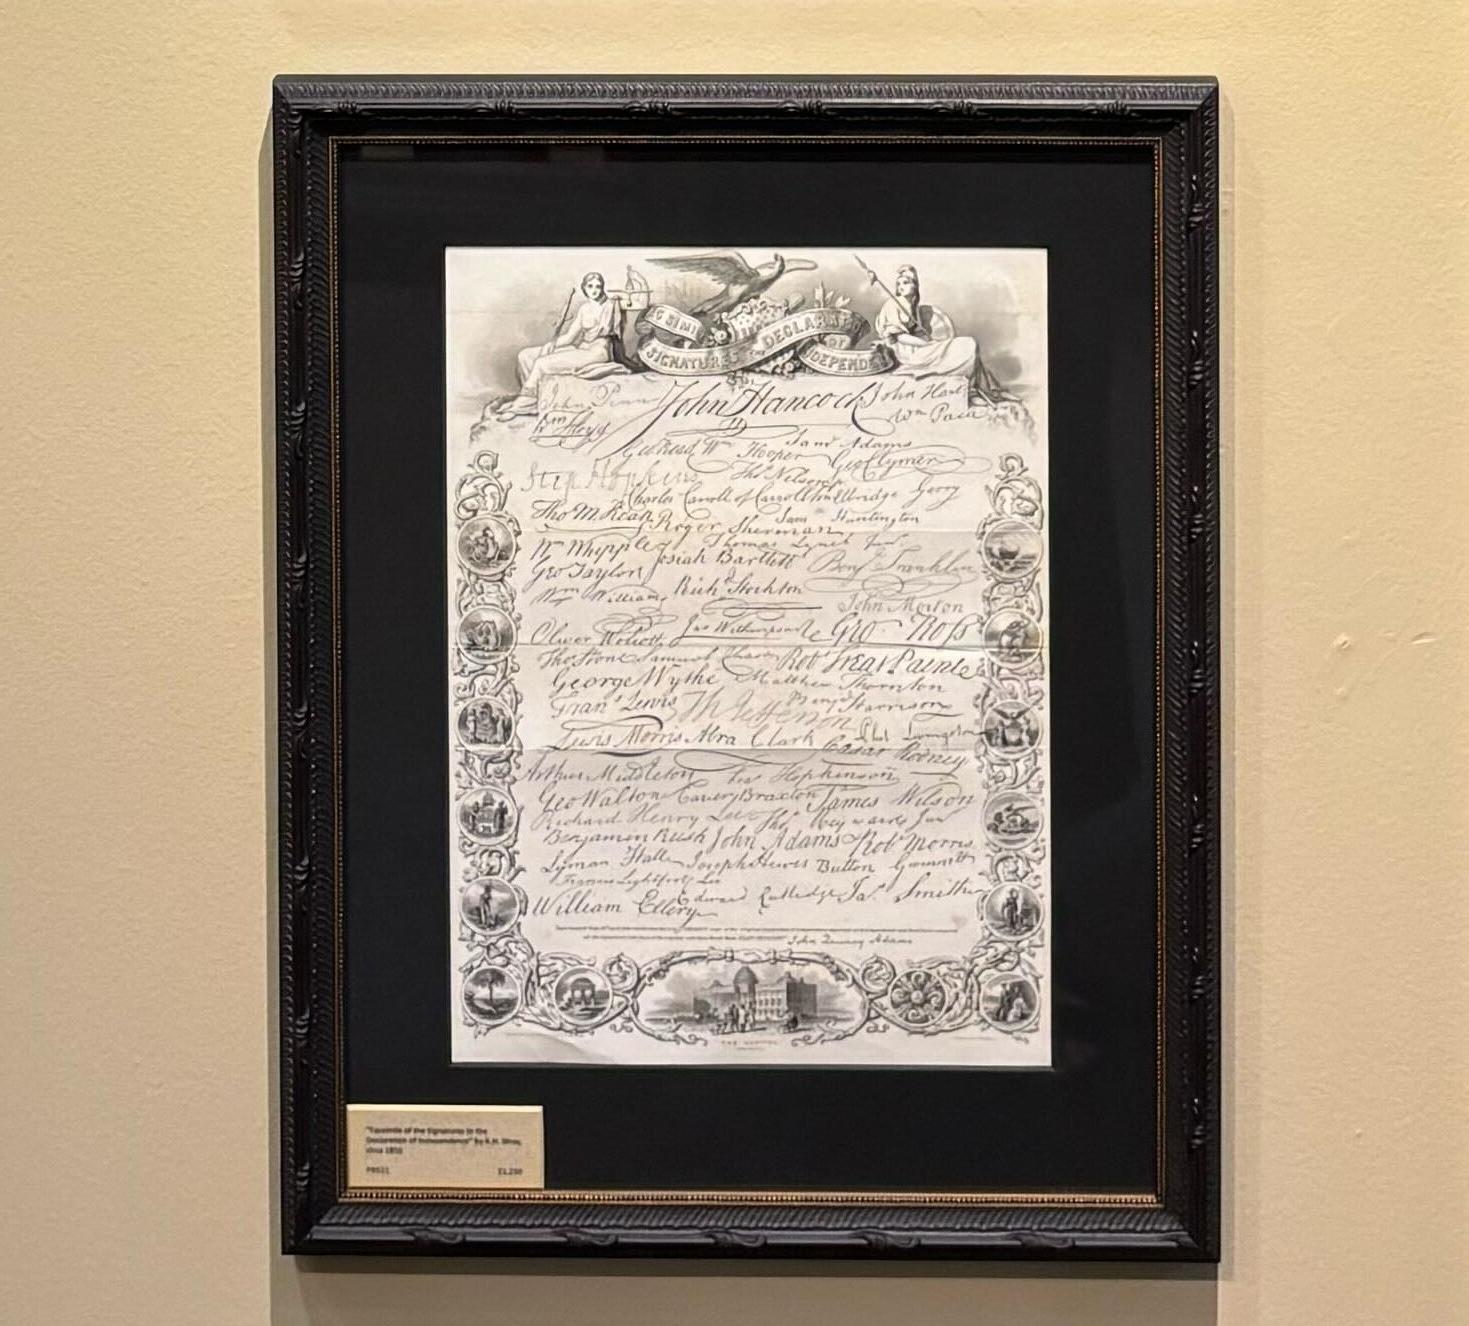 SIMI
SIGNATURES DECLARAT
OF
DEPENDE
John Penn John Hancock John Hart
Wm Floyd Wm Paca
Geo Read Wm Hooper Saml Adams
Geo Clymer
Step Hopkins Thos Nelson jr
Charles Carroll of Carrollton Elbridge Gerry
Tho M Kean Roger Sherman Saml Huntington
Wm Whipple Thomas Lynch Junr
Geo Taylor Josiah Bartlett Benj Franklin
Wm Williams Richd Stockton John Morton
Oliver Wolcott Jno Witherspoon Geo Ross
Thos Stone Samuel Chase Robt Treat Paine
George Wythe Matthew Thornton
Frans Lewis Th Jefferson Benj Harrison
Lewis Morris Abra Clark Phil Livingston
Cæsar Rodney
Arthur Middleton Fras Hopkinson
Geo Walton Carter Braxton James Wilson
Richard Henry Lee Thos Heyward Junr
Benjamin Rush John Adams Robt Morris
Lyman Hall Joseph Hewes Button Gwinnett
Francis Lightfoot Lee
William Ellery Edward Rutledge Jas Smith
John Quincy Adams
THE CAPITOL
"Facsimile of the Signatures to the
Declaration of Independence" by
circa 1850